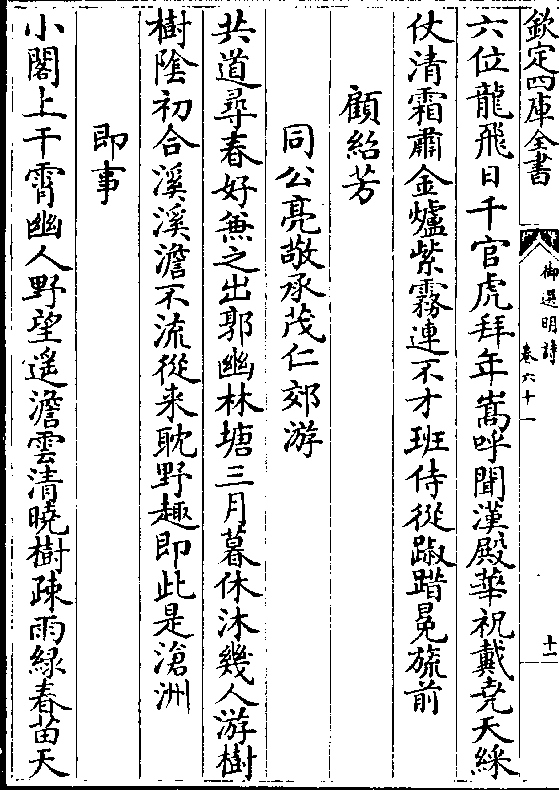 欽定四庫全書
御選明詩
卷六十一
十一
六位龍飛日千官虎拜年嵩呼聞漢殿華祝戴堯天綵
仗清霜肅金爐紫霧連不才班侍從踧踖冕旒前
顧紹芳
同公亮敬承茂仁郊游
共道尋春好兼之出郭幽林塘三月暮休沐幾人游樹
樹陰初合溪溪澹不流從来耽野趣即此是滄洲
即事
小閣上干霄幽人野望遥澹雲清曉樹疎雨緑春苗天